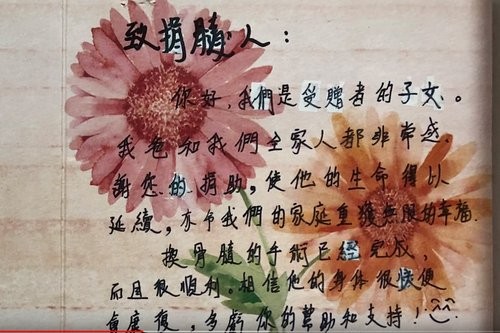 致捐髓人：
你好，我們是受贈者的子女。
我爸和我們全家人都非常感
謝您的捐助，使他的生命得以
延續，亦令我們的家庭重獲無限的幸福.
換骨髓的手術已經完成，
而且很順利.相信他的身体很快便
會康復，多虧你的幫助和支持！